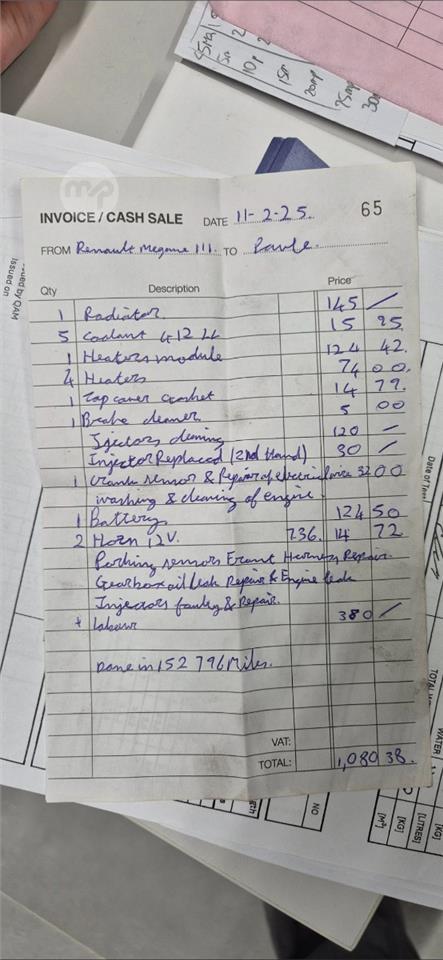 25mg
5m
10p
15m
20mp
75mg
30m
mp
INVOICE / CASH SALE DATE 11-2-25. 65
FROM Renault Megane III. TO Paule.
Qty Description Price
1 Radiator 145 /
5 Coolant 4 12 LL 15 95.
1 Heaters module 124 42.
4 Heaters 74 00.
1 Tap cover Gasket 14 79.
1 Brake cleaner 5 00
Ijectors clening 120 /
Injector Replaced (2nd Hand) 30 /
1 Crank sensor & Repair of electrical wire 32 00
washing & cleaning of engine.
1 Battery 124 50
2 Horn 12V. 736. 14 72
Parking sensors Frant Harness Repair.
Gearbox oil leak Repair & Engine leak
Injectors faulty & Repair.
+ Labour 380 /
Done in 152 796 Miles.
VAT:
TOTAL: 1,080 38.
Issued by QAM
Issued on
Date of Test
TOTAL
WATER
[LITRES]
[KG]
[KG]
[M³]
NO